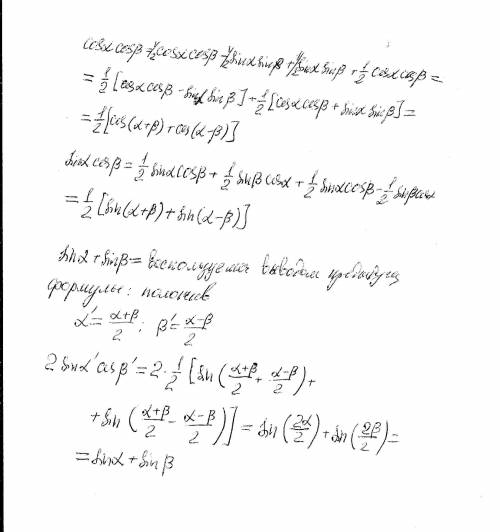 cosα cosβ = 1/2 cosα cosβ - 1/2 sinα sinβ + 1/2 sinα sinβ + 1/2 cosα cosβ =
= 1/2 [cosα cosβ - sinα sinβ] + 1/2 [cosα cosβ + sinα sinβ] =
= 1/2 [cos(α+β) + cos(α-β)]
sinα cosβ = 1/2 sinα cosβ + 1/2 sinβ cosα + 1/2 sinα cosβ - 1/2 sinβ cosα
= 1/2 [sin(α+β) + sin(α-β)]
sinα + sinβ = воспользуемся выводом предыдущ
формулы: положив
α' = (α+β)/2; β' = (α-β)/2
2 sinα' cosβ' = 2 · 1/2 [sin((α+β)/2 + (α-β)/2) +
+ sin((α+β)/2 - (α-β)/2)] = sin(2α/2) + sin(2β/2) =
= sinα + sinβ